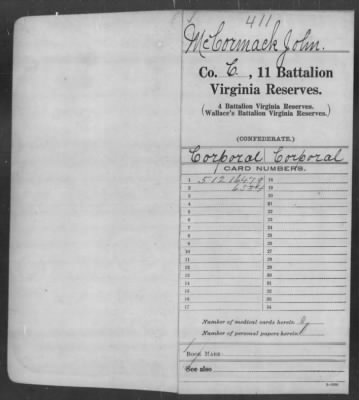 411
McCormack John.
Co. C, 11 Battalion
Virginia Reserves.
(4 Battalion Virginia Reserves.
Wallace's Battalion Virginia Reserves.)
(CONFEDERATE.)
Corporal Corporal
CARD NUMBERS.
1 51216479 18
2 19
3 20
4 21
5 22
6 23
7 24
8 25
9 26
10 27
11 28
12 29
13 30
14 31
15 32
16 33
17 34
Number of medical cards herein
Number of personal papers herein
BOOK MARK:
See also